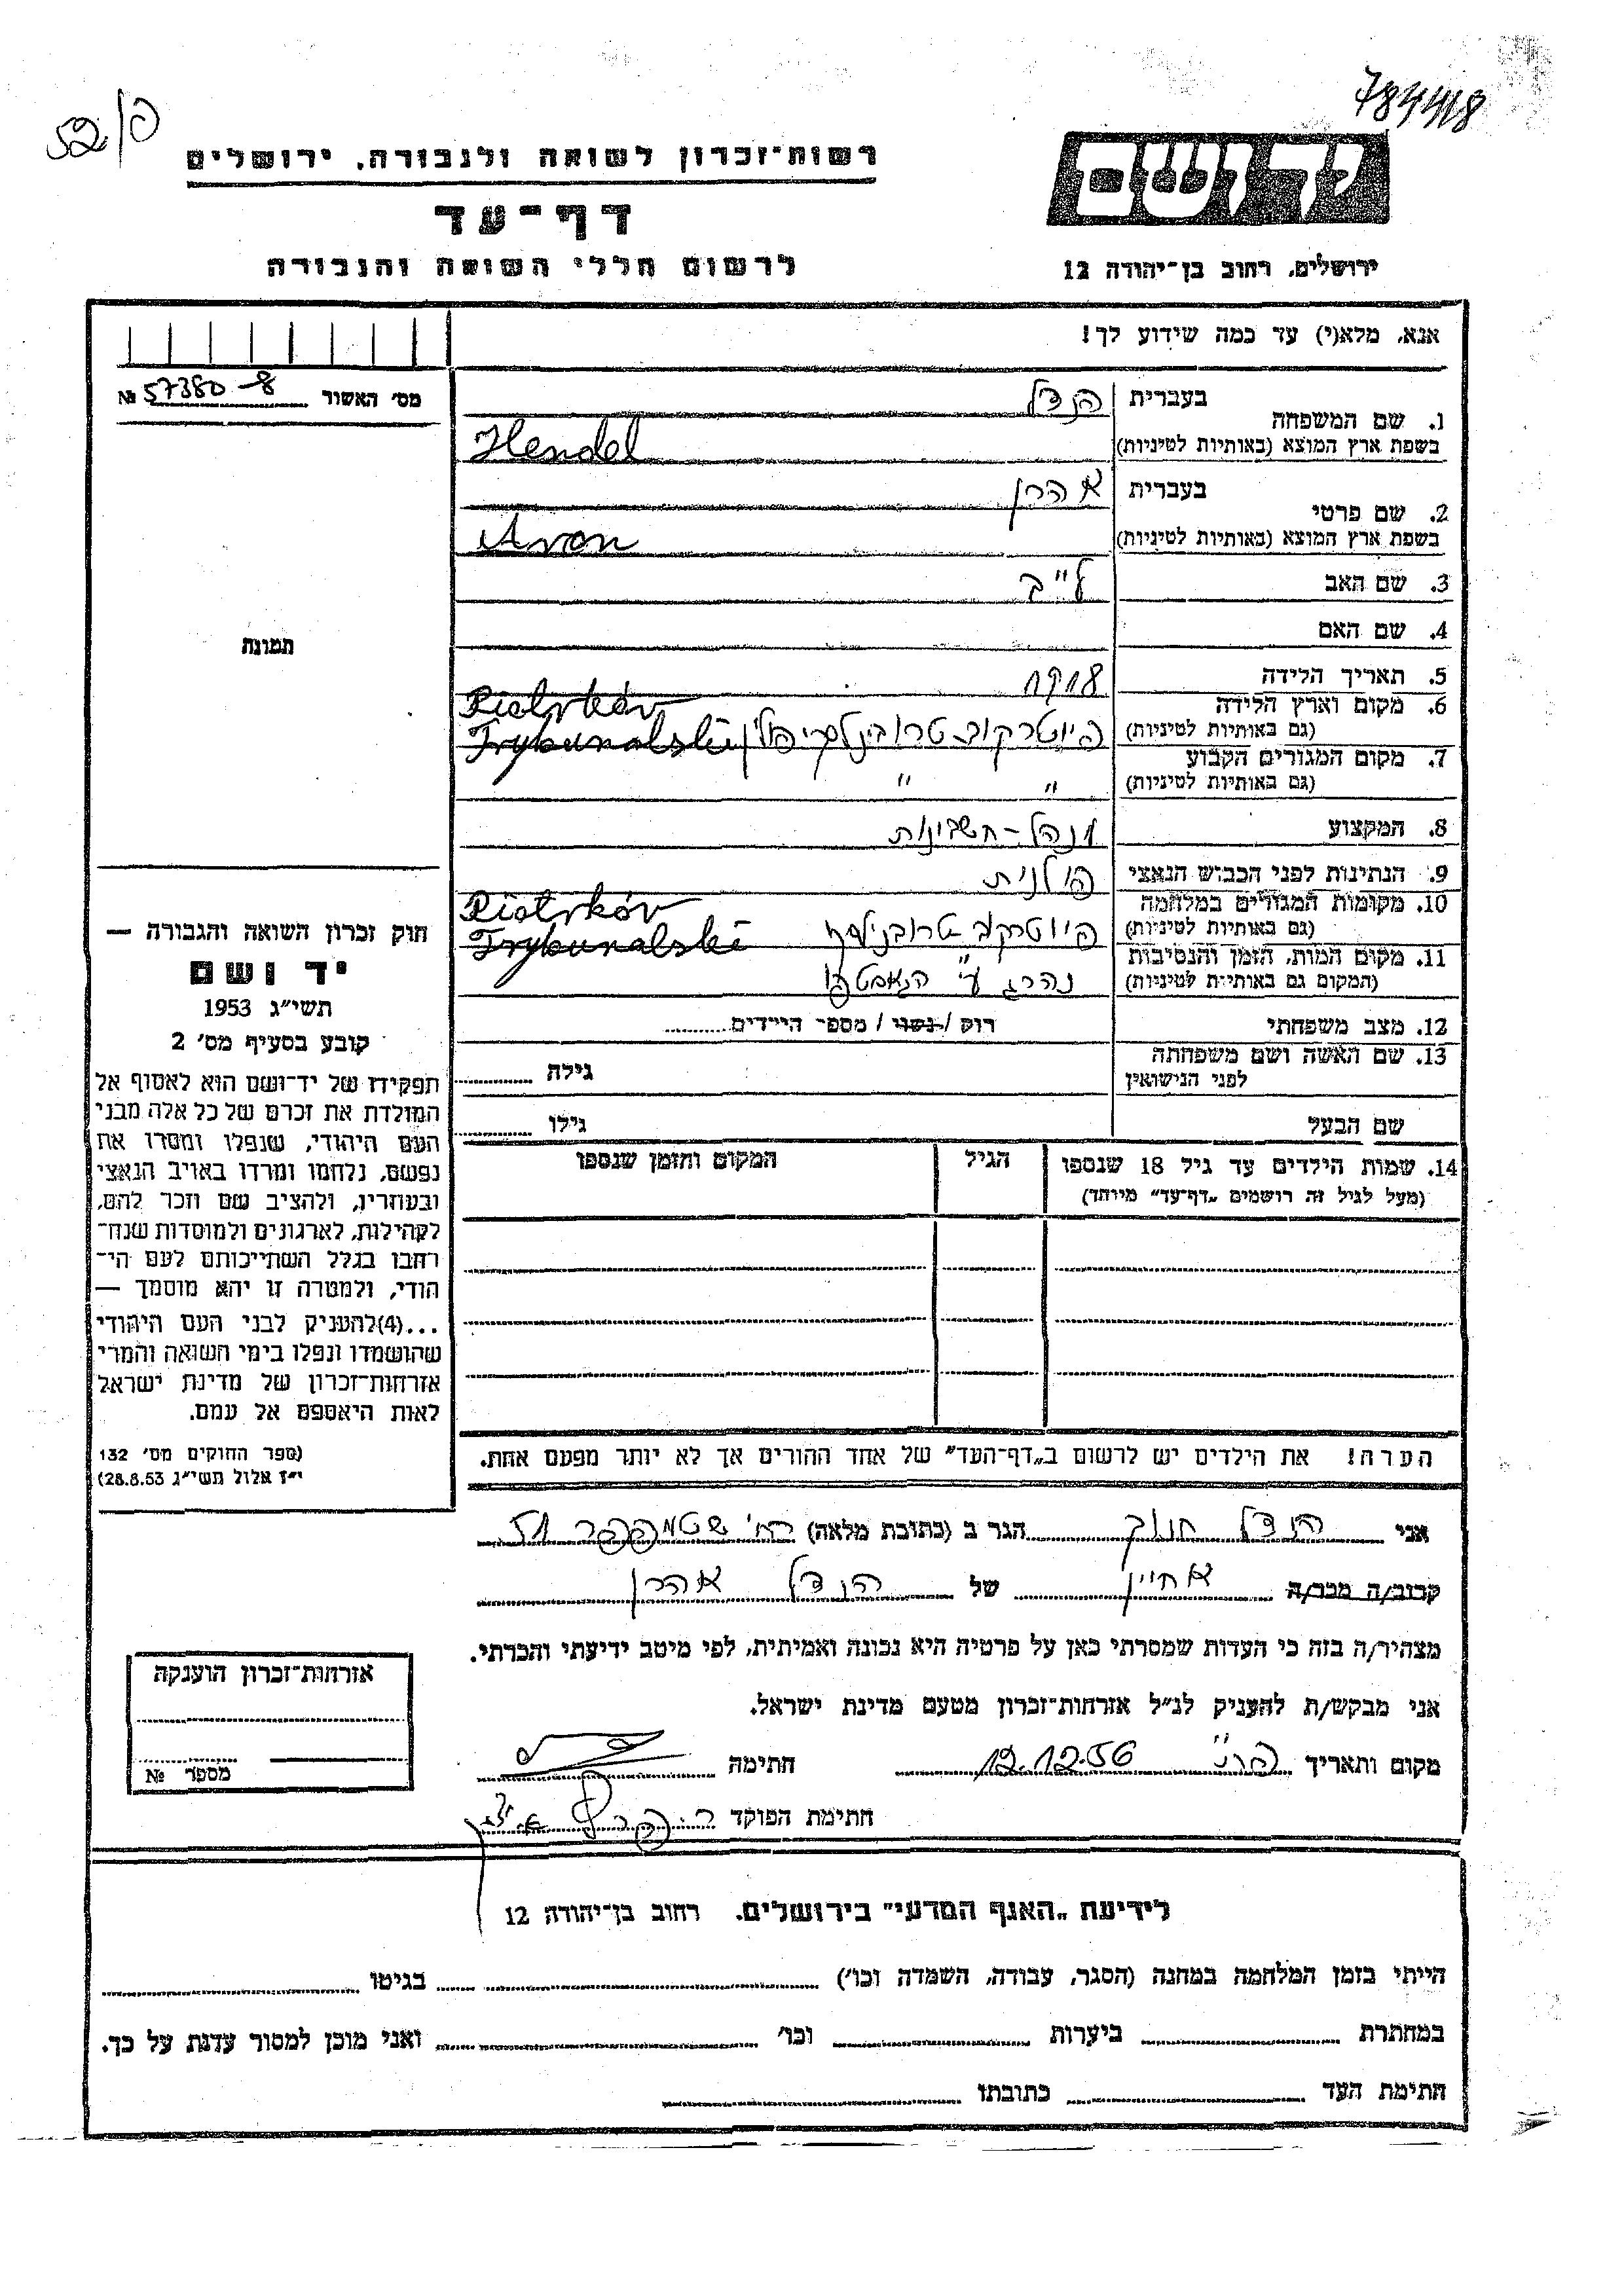 784418
52/פ
יד ושם
רשות־זכרון לשואה ולגבורה, ירושלים
דף־עד
לרשום חללי השואה והגבורה
ירושלים, רחוב בן־יהודה 12
אנא, מלא(י) עד כמה שידוע לך!
מס׳ האשור № 57380-8
תמונה
1. שם המשפחה
בעברית הנדל
בשפת ארץ המוצא (באותיות לטיניות) Hendel
2. שם פרטי
בעברית אהרן
בשפת ארץ המוצא (באותיות לטיניות) Aron
3. שם האב ל״ב
4. שם האם
5. תאריך הלידה 1918
6. מקום וארץ הלידה Piotrków
(גם באותיות לטיניות) פיוטרקוב טרובינלסקי פולין Trybunalski
7. מקום המגורים הקבוע
(גם באותיות לטיניות) ״ ״
8. המקצוע מנהל-חשבונות
9. הנתינות לפני הכבוש הנאצי פולנית
10. מקומות המגורים במלחמה Piotrków
(גם באותיות לטיניות) פיוטרקוב טרובנילסקי Trybunalski
11. מקום המות, הזמן והנסיבות
(המקום גם באותיות לטיניות) נהרג ע״י הגאסטפו
12. מצב משפחתי רוק / נשוי / מספר הילדים
13. שם האשה ושם משפחתה
לפני הנישואין גילה
שם הבעל גילו
14. שמות הילדים עד גיל 18 שנספו הגיל המקום והזמן שנספו
(מעל לגיל זה רושמים „דף־עד״ מיוחד)
הערה! את הילדים יש לרשום ב„דף־העד״ של אחד ההורים אך לא יותר מפעם אחת.
חוק זכרון השואה והגבורה —
יד ושם
תשי״ג 1953
קובע בסעיף מס׳ 2
תפקידו של יד־ושם הוא לאסוף אל
המולדת את זכרם של כל אלה מבני
העם היהודי, שנפלו ומסרו את
נפשם, נלחמו ומרדו באויב הנאצי
ובעוזריו, ולהציב שם וזכר להם,
לקהילות, לארגונים ולמוסדות שנח־
רבו בגלל השתייכותם לעם הי־
הודי, ולמטרה זו יהא מוסמך —
...(4) להעניק לבני העם היהודי
שהושמדו ונפלו בימי השואה והמרי
אזרחות־זכרון של מדינת ישראל
לאות היאספם אל עמם.
(ספר החוקים מס׳ 132
י״ז אלול תשי״ג 28.8.53)
אני הנדל חנוך הגר ב (כתובת מלאה) רח׳ שטמפפר 51
קרוב/ה מכר/ה אחיין של הנדל אהרן
מצהיר/ה בזה כי העדות שמסרתי כאן על פרטיה היא נכונה ואמיתית, לפי מיטב ידיעתי והכרתי.
אני מבקש/ת להעניק לנ״ל אזרחות־זכרון מטעם מדינת ישראל.
מקום ותאריך 12.12.56 חתימה
חתימת הפוקד
אזרחות־זכרון הוענקה
מספר №
לידיעת „האגף המדעי״ בירושלים, רחוב בן־יהודה 12
הייתי בזמן המלחמה במחנה (הסגר, עבודה, השמדה וכו׳) בגיטו
במחתרת ביערות וכו׳ ואני מוכן למסור עדות על כך.
חתימת העד כתובתו